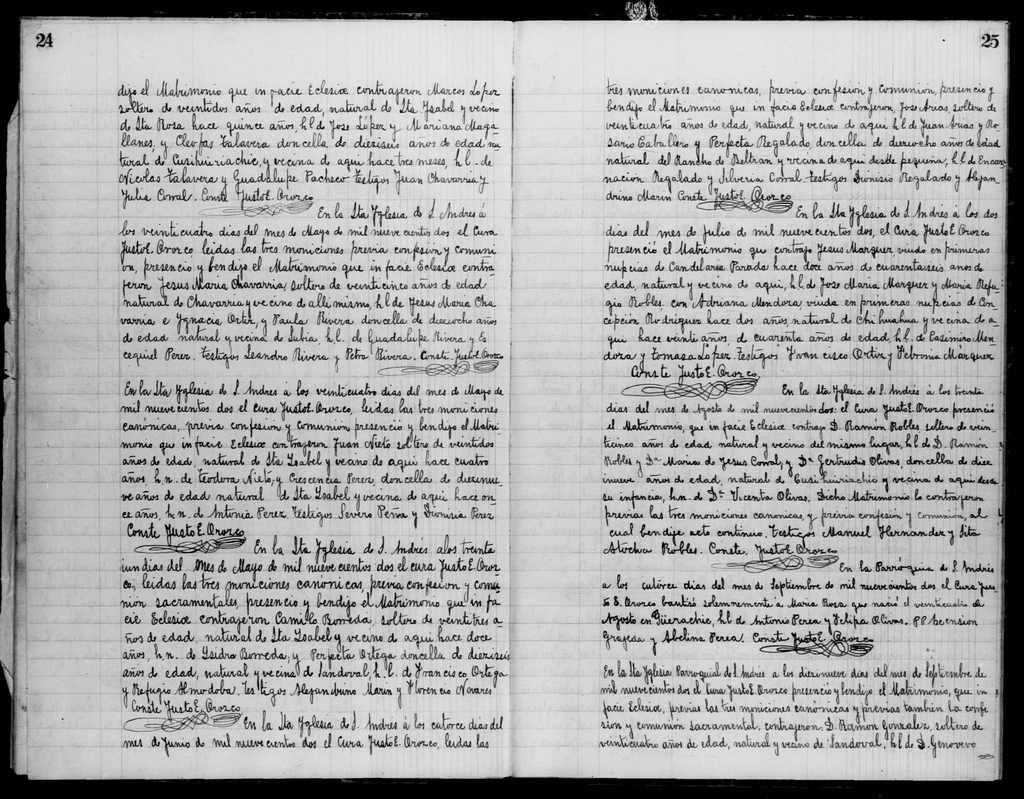 24
dijo el Matrimonio que in facie Eclesiæ contrajeron Marcos López
soltero de veintidos años de edad, natural de Sta Ysabel y vecino
de Sta Rosa hace quince años, h.l. de Jose López y Mariana Maga
llanes, y Cleofas Talavera doncella de dieziseis años de edad na
tural de Cusihuiriachic, y vecina de aqui hace tres meses, h.l. de
Nicolas Talavera y Guadalupe Pacheco. Testigos Juan Chavarria y
Julia Corral. Conste Justo E. Orozco
En la Sta Yglesia de S. Andres á
los veinticuatro dias del mes de Mayo de mil nuevecientos dos el Cura
Justo E. Orozco leidas las tres moniciones previa confesion y comuni
on, presencio y bendijo el Matrimonio que in facie Eclesiæ contra-
jeron Jesus Maria Chavarria, soltero de veinticinco años de edad
natural de Chavarria y vecino de alli mismo, h.l. de Jesus Maria Cha
varria e Ygnacia Ortiz, y Paula Rivera doncella de dieziocho años
de edad natural y vecina de Lubia, h.l. de Guadalupe Rivera y Es
cequiel Perez. Testigos Leandro Rivera y Petra Rivera. Conste. Justo E. Orozco
En la Sta Yglesia de S. Andres a los veinticuatro dias del mes de Mayo de
mil nuevecientos dos el Cura Justo E. Orozco, leidas las tres moniciones
canónicas, previa confesion y comunion, presencio y bendijo el Matri
monio que in facie Eclesiæ contrajeron Juan Nieto soltero de veintidos
años de edad, natural de Sta Ysabel y vecino de aqui hace cuatro
años, h.n. de Teodora Nieto, y Crescencia Perez, doncella de diezinue-
ve años de edad natural de Sta Ysabel y vecina de aqui hace on-
ce años, h.n. de Antonia Perez. Testigos Severo Peña y Dionisia Perez
Conste Justo E. Orozco
En la Sta Yglesia de S. Andrés a los treinta
iun dias del mes de Mayo de mil nuevecientos dos el cura Justo E. Oroz-
co, leidas las tres moniciones canonicas, previa confesion y comu-
nion sacramentales, presencio y bendijo el Matrimonio que in fa
cie Eclesiæ contrajeron Camilo Borreda, soltero de veintitres a
ños de edad, natural de Sta Ysabel y vecino de aqui hace doce
años, h.n. de Ysidra Borreda, y Perfecta Ortega doncella de dieziseis
años de edad, natural y vecina de Sandoval, h.l. de Francisco Ortega
y Refugio Almodoba. Testigos Alejandrino Marin y Florencio Nevares
Conste Justo E. Orozco
En la Sta Yglesia de S. Andrés á los catorce dias del
mes de Junio de mil nuevecientos dos el Cura Justo E. Orozco, leidas las
25
tres moniciones canonicas, previa confesion y comunion, presencio y
bendijo el Matrimonio que in facie Eclesiæ contrajeron, Jose Arias, soltero de
veinticuatro años de edad, natural y vecino de aqui h.l. de Juan Arias y Ro-
sario Caballero y Perfecta Regalado, doncella de dieziocho años de edad
natural del Rancho de Beltran y vecina de aqui desde pequeña, h.l. de Encar-
nacion Regalado y Silveria Corral. Testigos Dionisio Regalado y Alejan-
drino Marin Conste Justo E. Orozco
En la Sta Yglesia de S. Andrés á los dos
dias del mes de Julio de mil nuevecientos dos, el Cura Justo E. Orozco
presenció el Matrimonio que contrajo Jesus Marquez, viudo en primeras
nupcias de Candelaria Parada hace doce años de cuarentaiseis años de
edad, natural y vecino de aqui, h.l. de Jose Maria Marquez y Maria Refu-
gio Robles, con Adriana Mendoza, viuda en primeras nupcias de Con-
cepción Rodriguez hace dos años, natural de Chihuahua y vecina de a-
qui hace veinte años de cuarenta años de edad, h.l. de Casimiro Men-
doza y Tomasa López. Testigos Francisco Ortiz y Febronia Marquez
Conste Justo E. Orozco
En la Sta Yglesia de S. Andrés á los treinta
dias del mes de Agosto de mil nuevecientos dos: el Cura Justo E. Orozco presenció
el Matrimonio, que in facie Eclesiæ contrajo D. Ramón Robles soltero de vein-
ticinco años de edad natural y vecino del mismo lugar, h.l. de D. Ramon
Robles y Dª Maria de Jesus Corral, y Dª Gertrudis Olivas, doncella de diez
inueve años de edad, natural de Cusihuiriachic y vecina de aqui desde
su infancia, h.n. de Dª Vicenta Olivas. Dicho Matrimonio lo contrajeron
previas las tres moniciones canonicas, y previa confesión y comunion, al
cual bendije acto continuo. Testigos Manuel Hernandez y Sita
Atocha Robles. Conste. Justo E. Orozco
En la Parróquia de S. Andrés
a los catorce dias del mes de Septiembre de mil nuevecientos dos el Cura Jus
to E. Orozco bautisó solemnemente a Maria Rosa que nació el veinticuatro de
Agosto en Güerachic, h.l. de Antonio Perea y Felipa Olivas. P.P. Ascension
Grageda y Abelina Perea. Conste Justo E. Orozco
En la Sta Yglesia Parroquial de S. Andrés a los diezinueve dias del mes de Septiembre de
mil nuevecientos dos el Cura Justo E. Orozco presencio y bendijo el Matrimonio, que in
facie Eclesiæ, previas las tres moniciones canónicas y previas tambien la confe
sion y comunion sacramental, contrajeron: D. Ramon Gonzalez, soltero de
veinticuatro años de edad, natural y vecino de Sandoval, h.l. de D. Genovevo